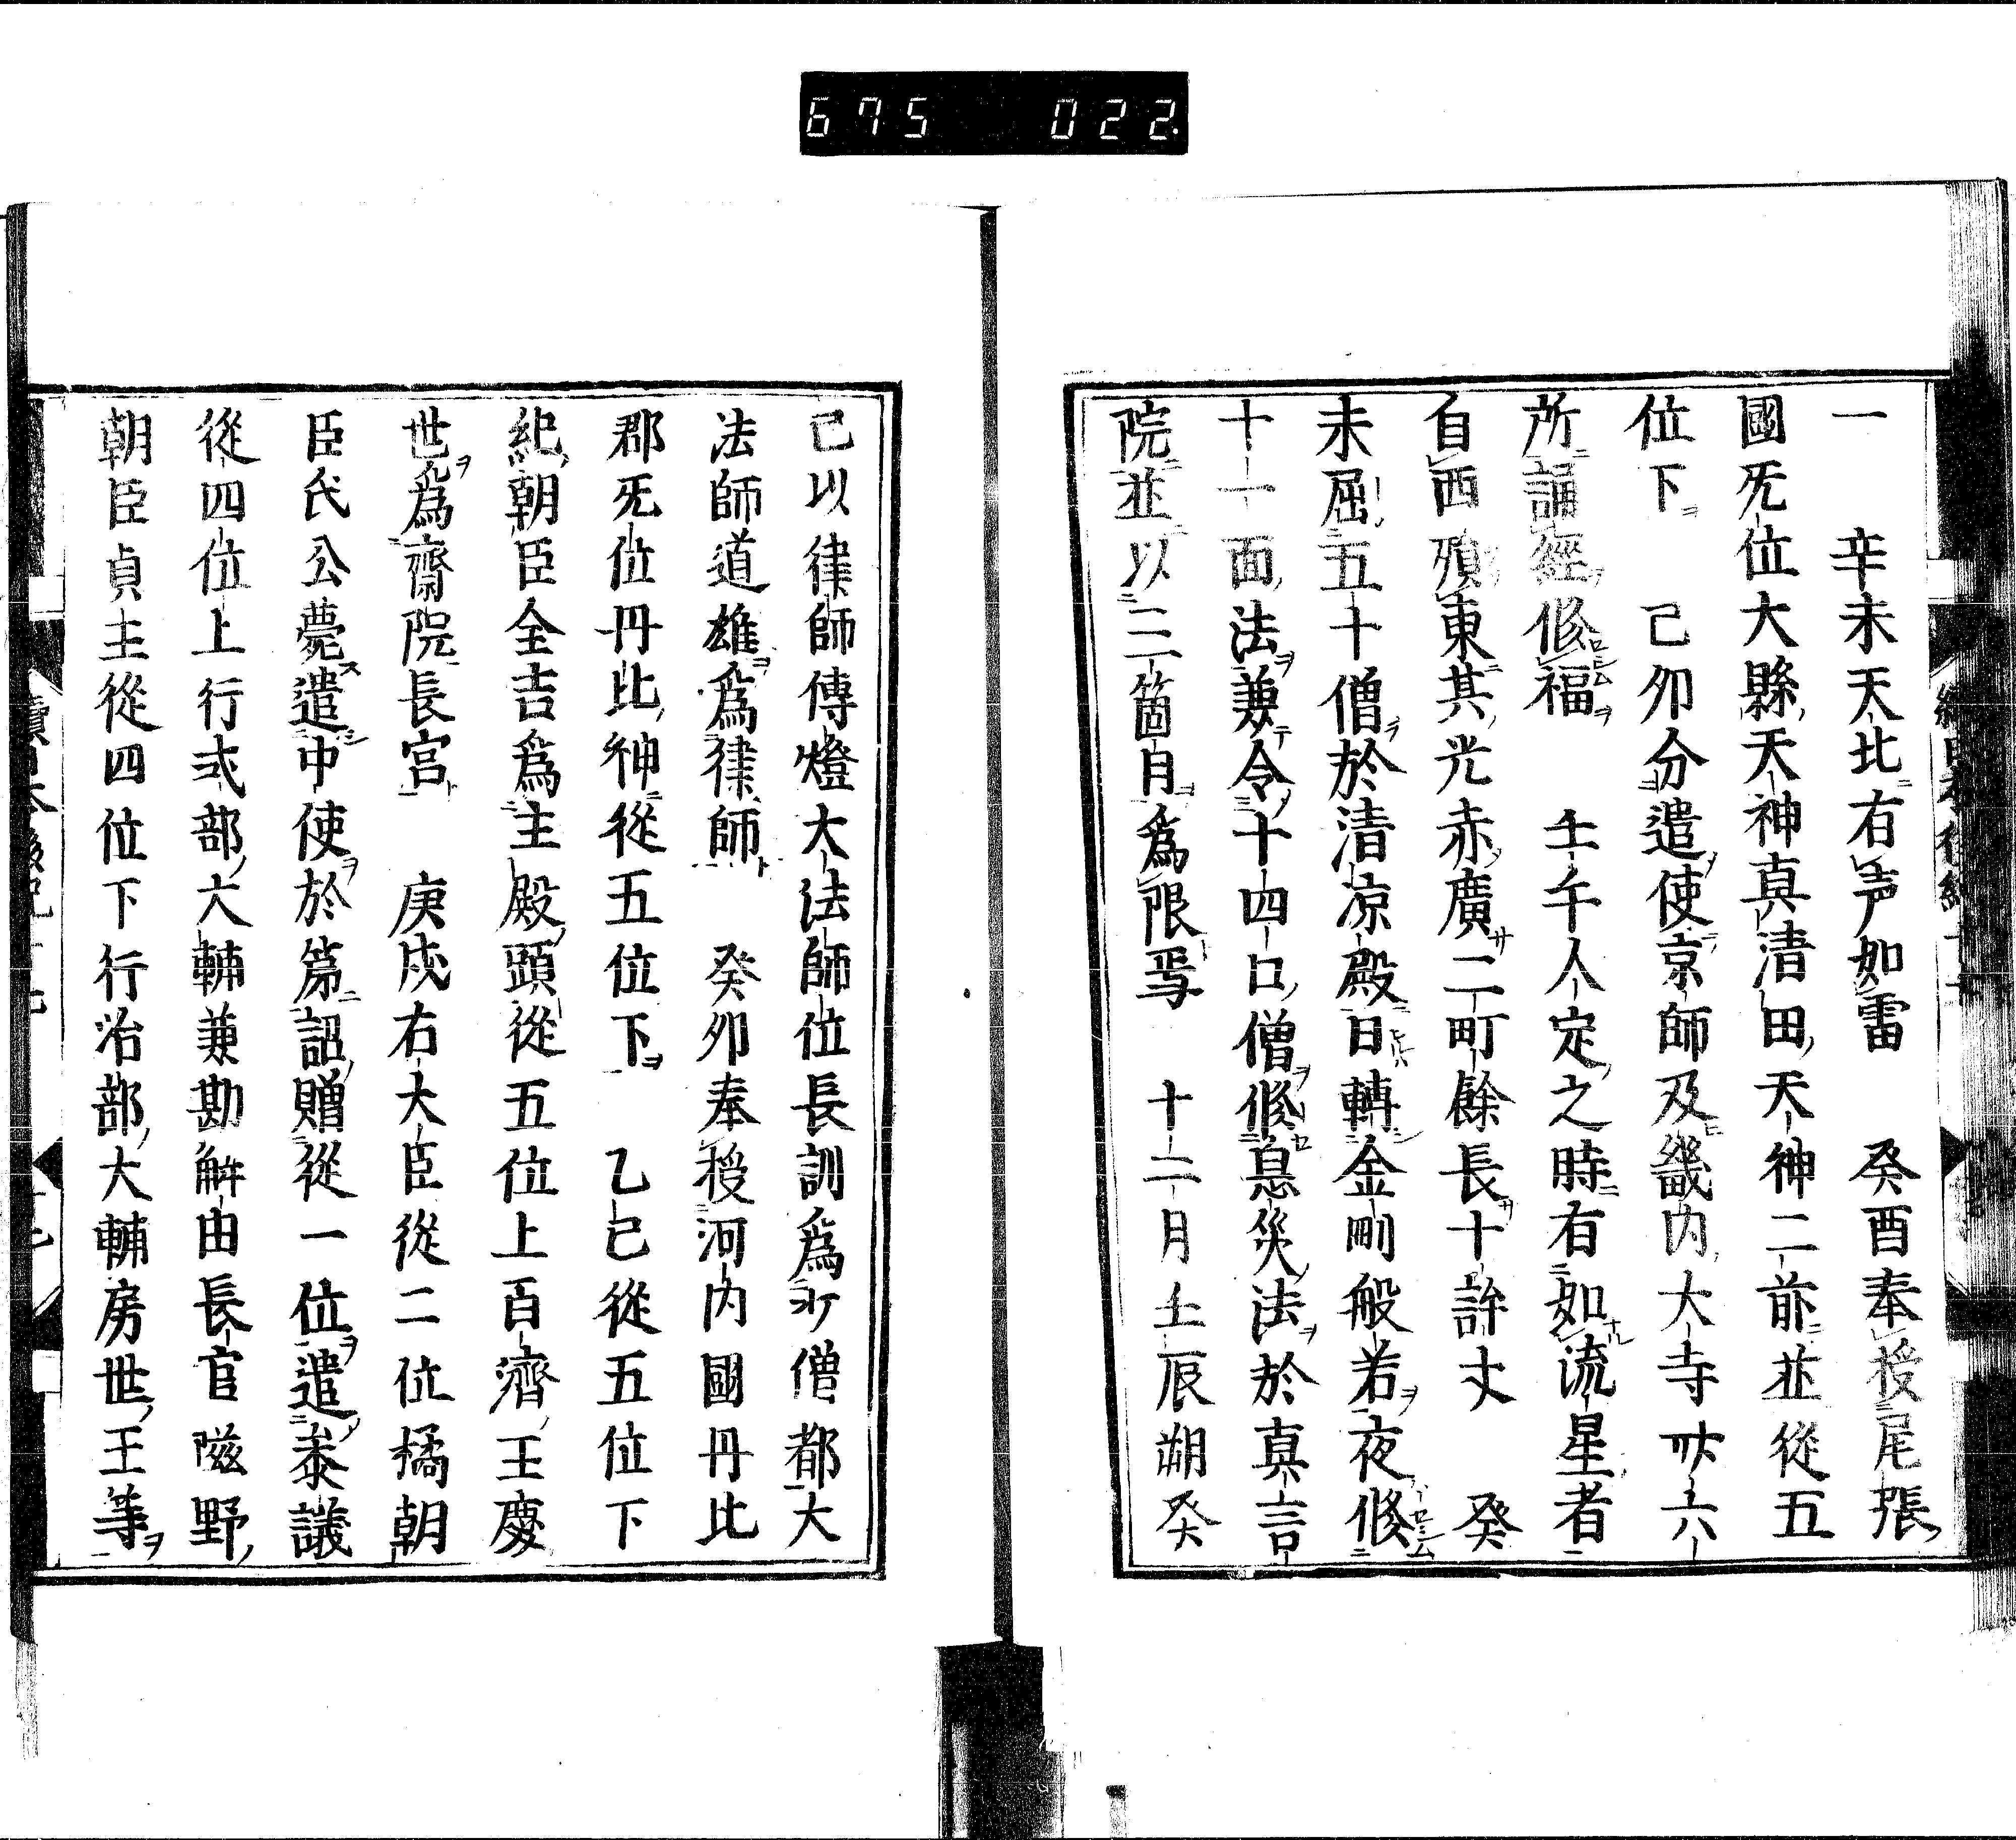 675 022
一 辛未天北右声如雷 癸酉奉授尾張
國旡位大縣天神真清田天神二前並從五
位下 己卯分遣使京師及畿内大寺卅六
所誦經修福 壬午人定之時有如流星者
自西殞東其光赤廣二町餘長十許丈 癸
未屈五十僧於清凉殿日轉金剛般若夜修
十一面法兼令十四口僧修息災法於真言
院並以二箇月爲限焉 十二月壬辰朔癸
己以律師傳燈大法師位長訓爲少僧都大
法師道雄爲律師 癸卯奉授河内國丹比
郡旡位丹比神從五位下 乙已從五位下
紀朝臣全吉爲主殿頭從五位上百濟王慶
世爲齋院長宮 庚戌右大臣從二位橘朝
臣氏公薨遣中使於第詔贈從一位遣叅議
從四位上行式部大輔兼勘解由長官滋野
朝臣貞主從四位下行治部大輔房世王等